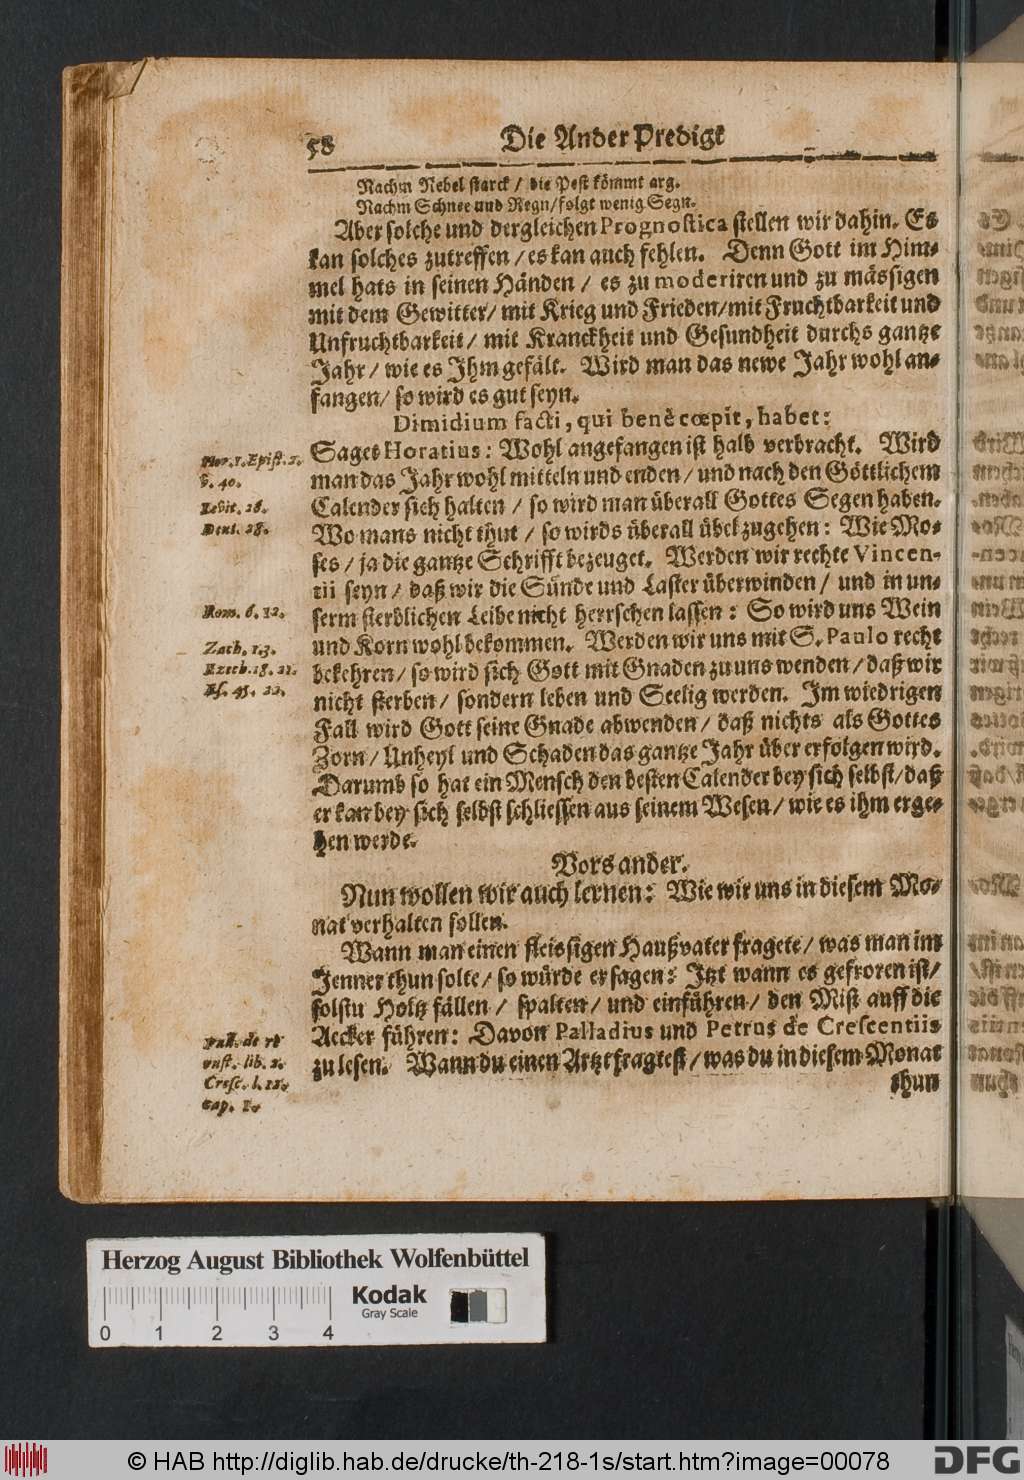 58
Die Ander Predigt
Nachm Nebel starck / die Pest kömmt arg.
Nachm Schnee und Regn/folgt wenig Segn.
Aber solche und dergleichen Prognostica stellen wir dahin. Es
kan solches zutreffen / es kan auch fehlen. Denn Gott im Him-
mel hats in seinen Händen / es zu moderiren und zu mässigen
mit dem Gewitter/ mit Krieg und Frieden/mit Fruchtbarkeit und
Unfruchtbarkeit/ mit Kranckheit und Gesundheit durchs gantze
Jahr / wie es Ihm gefält. Wird man das newe Jahr wohl an-
fangen/ so wird es gut seyn.
Dimidium facti, qui benè cœpit, habet:
Hor. 1. Epist. 2.
v. 40.
Levit. 26.
Deut. 28.
Saget Horatius: Wohl angefangen ist halb verbracht. Wird
man das Jahr wohl mitteln und enden / und nach den Göttlichem
Calender sich halten / so wird man überall Gottes Segen haben.
Wo mans nicht thut / so wirds überall übel zugehen: Wie Mo-
ses / ja die gantze Schrifft bezeuget. Werden wir rechte Vincen-
tii seyn / daß wir die Sünde und Laster überwinden / und in un-
Rom. 6. 12.
serm sterblichen Leibe nicht herrschen lassen: So wird uns Wein
Zach. 1.3.
Ezech. 18. 21.
Es. 45. 22.
und Korn wohl bekommen. Werden wir uns mit S. Paulo recht
bekehren / so wird sich Gott mit Gnaden zu uns wenden / daß wir
nicht sterben / sondern leben und Seelig werden. Im wiedrigen
Fall wird Gott seine Gnade abwenden / daß nichts als Gottes
Zorn / Unheyl und Schaden das gantze Jahr über erfolgen wird.
Darumb so hat ein Mensch den besten Calender bey sich selbst/daß
er kan bey sich selbst schliessen aus seinem Wesen / wie es ihm erge-
hen werde.
Vors ander.
Nun wollen wir auch lernen: Wie wir uns in diesem Mo-
nat verhalten sollen.
Wann man einen fleissigen Haußvater fragete / was man im
Jenner thun solte / so würde er sagen: Jtzt wann es gefroren ist/
solstu Holtz fällen / spalten / und einführen / den Mist auff die
Pall. de re
rust. lib. 2.
Cresc. l. 12.
cap. 1.
Aecker führen: Davon Palladius und Petrus de Crescentiis
zu lesen. Wann du einen Artzt fragtest / was du in diesem Monat
thun
Herzog August Bibliothek Wolfenbüttel
Kodak
Gray Scale
0 1 2 3 4
© HAB http://diglib.hab.de/drucke/th-218-1s/start.htm?image=00078
DFG